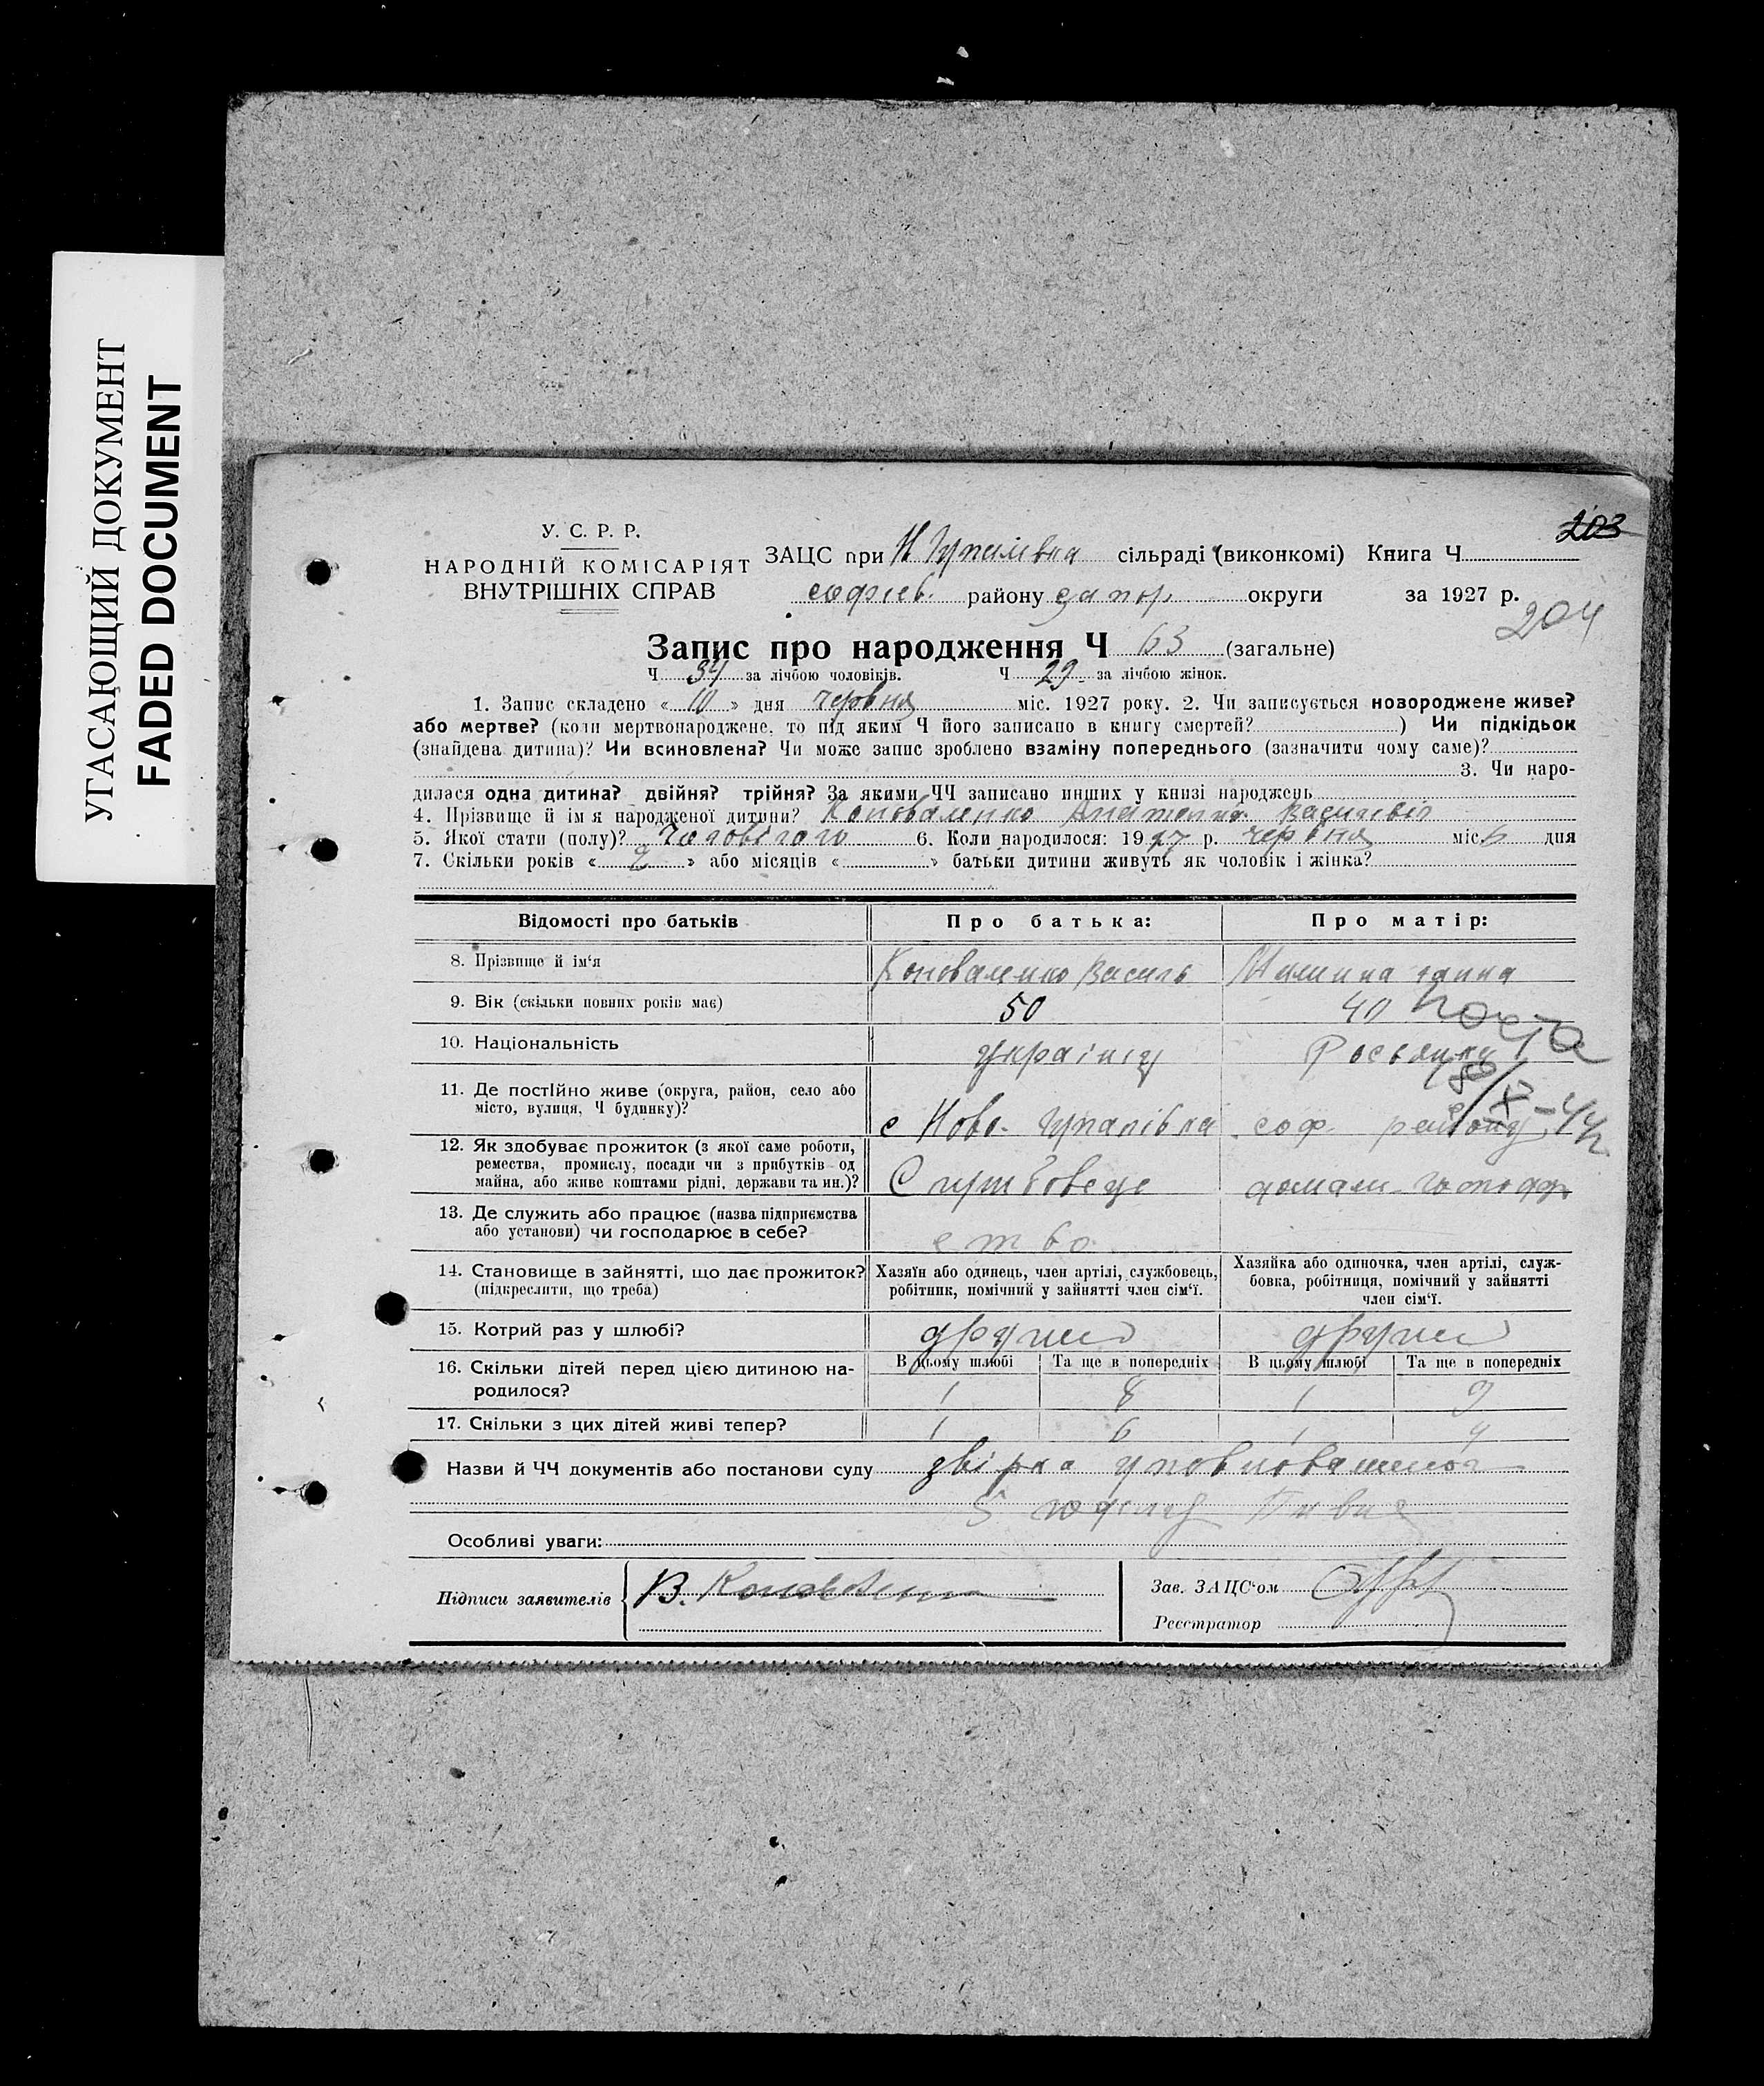 УГАСАЮЩИЙ ДОКУМЕНТ
FADED DOCUMENT
203
У. С. Р. Р.
НАРОДНІЙ КОМІСАРІЯТ
ВНУТРІШНІХ СПРАВ
ЗАЦС при Н Гупалівка сільраді (виконкомі) Книга Ч
софіев. району запор. округи за 1927 р.
204
Запис про народження Ч 63 (загальне)
Ч 34 за лічбою чоловіків. Ч 29 за лічбою жінок.
1. Запис складено « 10 » дня червня міс. 1927 року. 2. Чи записується новороджене живе?
або мертве? (коли мертвонароджене, то під яким Ч його записано в книгу смертей? ) Чи підкідьок
(знайдена дитина)? Чи всиновлена? Чи може запис зроблено взаміну попереднього (зазначити чому саме)?
3. Чи наро-
дилася одна дитина? двійня? трійня? За якими ЧЧ записано инших у книзі народжень
4. Прізвище й ім'я народженої дитини? Коноваленко Анатолій Васильев
5. Якої стати (полу)? Чоловічого 6. Коли народилося: 1927 р. червня міс. 6 дня
7. Скільки років « 2 » або місяців « » батьки дитини живуть як чоловік і жінка?
Відомості про батьків Про батька: Про матір:
8. Прізвище й ім'я Коноваленко Василь
9. Вік (скільки повних років має) 50 40
10. Національність українец
11. Де постійно живе (округа, район, село або
місто, вулиця, Ч будинку)? с Ново-Гупалівка соф. району
12. Як здобуває прожиток (з якої саме роботи,
ремества, промислу, посади чи з прибутків од
майна, або живе коштами рідні, держави та ин.)? Службовець домаш-господар
13. Де служить або працює (назва підприємства
або установи) чи господарює в себе? ство
14. Становище в зайнятті, що дає прожиток?
(підкреслити, що треба)
Хазяїн або одинець, член артілі, службовець,
робітник, помічний у зайнятті член сім'ї.
Хазяйка або одиночка, член артілі, служ-
бовка, робітниця, помічний у зайнятті
член сім'ї.
15. Котрий раз у шлюбі? другий другий
16. Скільки дітей перед цією дитиною на-
родилося?
В цьому шлюбі Та ще в попередніх В цьому шлюбі Та ще в попередніх
1 8 1 9
17. Скільки з цих дітей живі тепер? 1 6 1 4
Назви й ЧЧ документів або постанови суду звірка уповноваженого
Особливі уваги:
Підписи заявителів В. Коновален
Зав. ЗАЦС'ом
Реєстратор